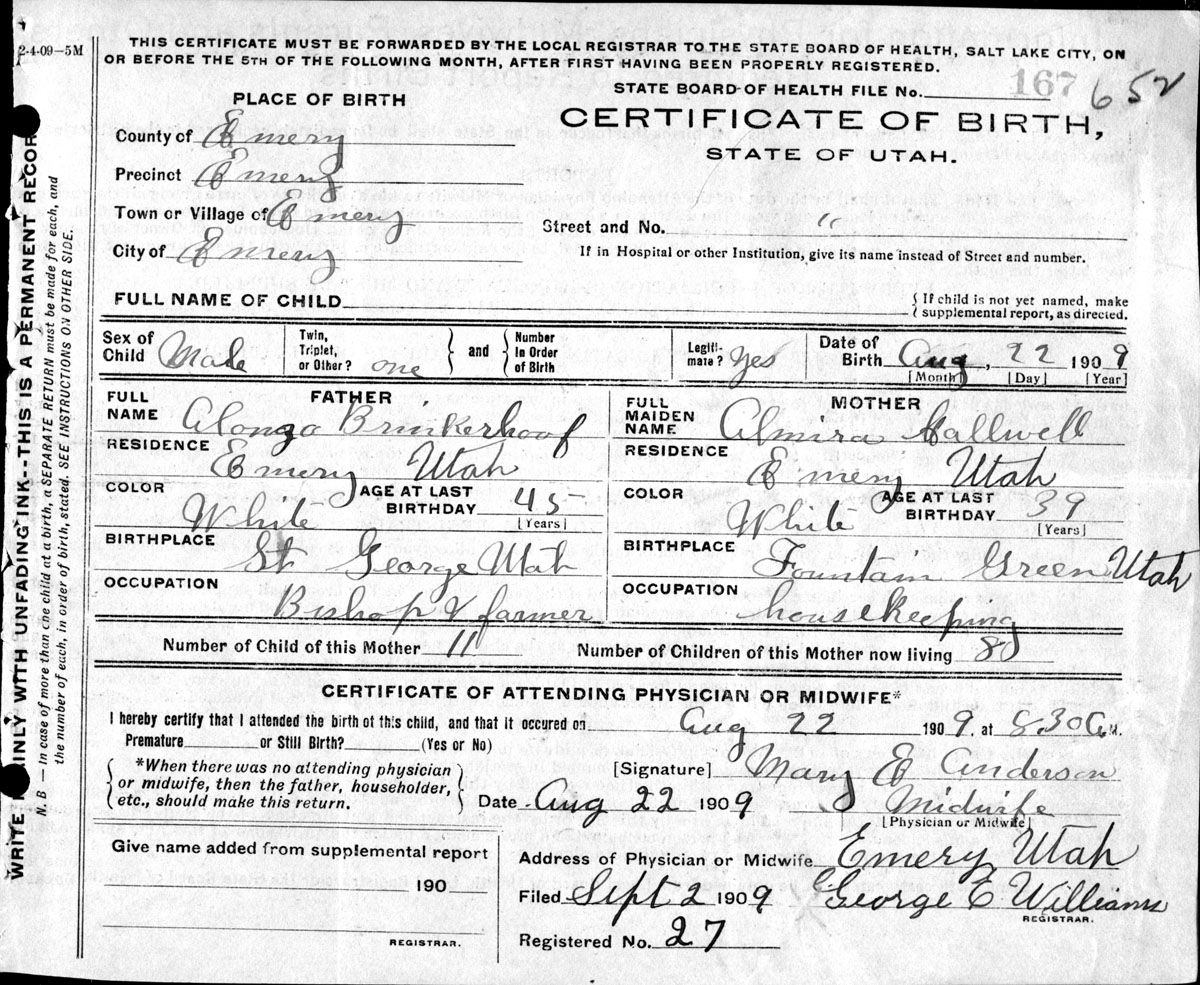 2-4-09—5M
THIS CERTIFICATE MUST BE FORWARDED BY THE LOCAL REGISTRAR TO THE STATE BOARD OF HEALTH, SALT LAKE CITY, ON
OR BEFORE THE 5TH OF THE FOLLOWING MONTH, AFTER FIRST HAVING BEEN PROPERLY REGISTERED.
STATE BOARD OF HEALTH FILE No. 167 652
PLACE OF BIRTH
CERTIFICATE OF BIRTH,
STATE OF UTAH.
County of Emery
Precinct Emery
Town or Village of Emery
Street and No. "
City of Emery
If in Hospital or other Institution, give its name instead of Street and number.
FULL NAME OF CHILD
{ If child is not yet named, make
supplemental report, as directed.
Sex of Child Male
Twin, Triplet, or Other? one } and { Number In Order of Birth
Legitimate? Yes
Date of Birth Aug, 22 1909
[Month] [Day] [Year]
FATHER
FULL NAME Alonzo Brinkerhoof
RESIDENCE Emery Utah
COLOR White
AGE AT LAST BIRTHDAY 45
[Years]
BIRTHPLACE St George Utah
OCCUPATION Bishop & farmer
MOTHER
FULL MAIDEN NAME Almira
RESIDENCE Emery Utah
COLOR White
AGE AT LAST BIRTHDAY 39
[Years]
BIRTHPLACE Fountain Green Utah
OCCUPATION housekeeping
Number of Child of this Mother 11
Number of Children of this Mother now living 8
CERTIFICATE OF ATTENDING PHYSICIAN OR MIDWIFE*
I hereby certify that I attended the birth of this child, and that it occured on Aug 22 1909. at 8.30 A.M.
Premature or Still Birth? (Yes or No)
{ *When there was no attending physician
or midwife, then the father, householder,
etc., should make this return. }
[Signature] Mary E Anderson
Date Aug 22 1909
Midwife
[Physician or Midwife]
Give name added from supplemental report
190
REGISTRAR.
Address of Physician or Midwife Emery Utah
Filed Sept 2 1909 George E Williams
REGISTRAR.
Registered No. 27
WRITE PLAINLY WITH UNFADING INK--THIS IS A PERMANENT RECORD
N. B — In case of more than one child at a birth, a SEPARATE RETURN must be made for each, and
the number of each, in order of birth, stated. SEE INSTRUCTIONS ON OTHER SIDE.